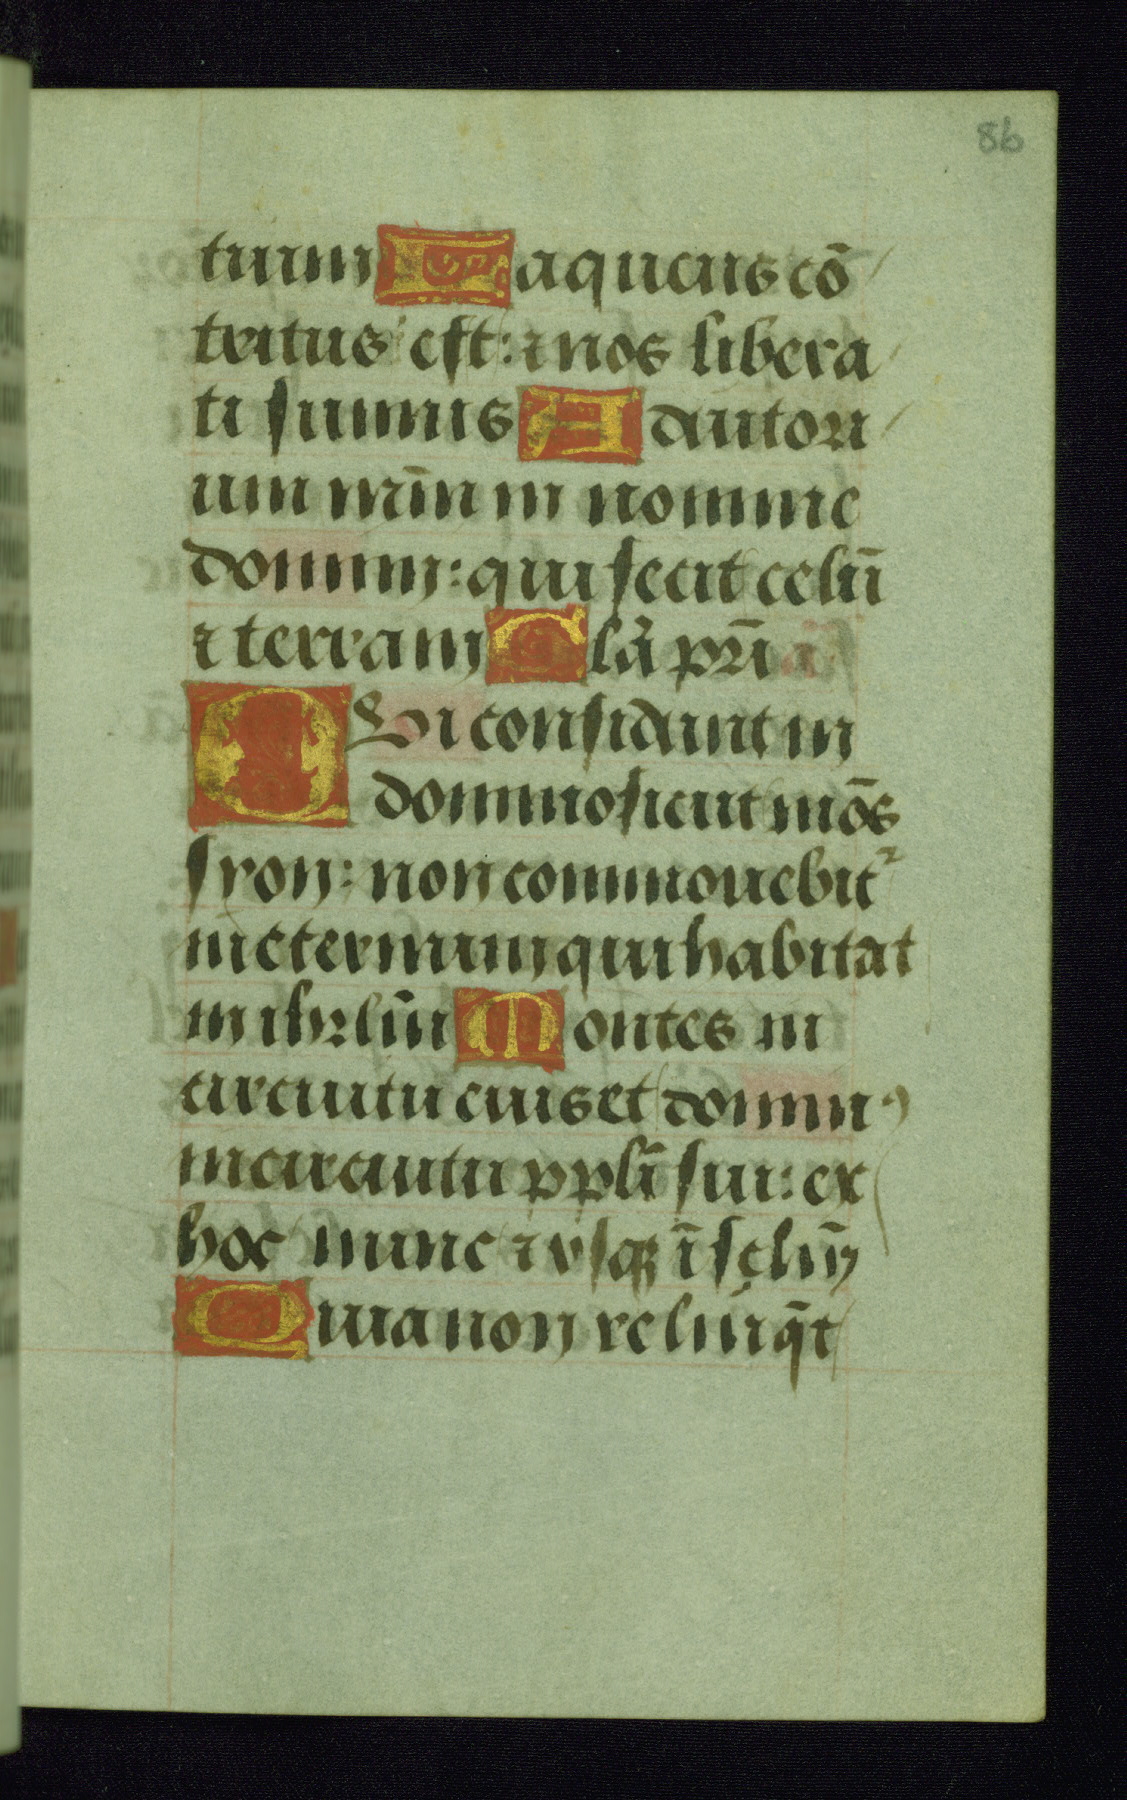 86
tuum Laqueus cō
tritus est: ⁊ nos libera
ti sumus Adiutori
um nr̄m in nomine
domini: qui fecit celū
⁊ terram Glā pri
Qui confidunt in
domino sicut mōs
syon: non commouebit᷑
in eternum qui habitat
in ihrlm̄ Montes in
circuitu eius et domin⁹
in circuitu ppłi sui: ex
hoc nunc ⁊ vsqꝫ ī sclm̄
Quia non relinq̄t